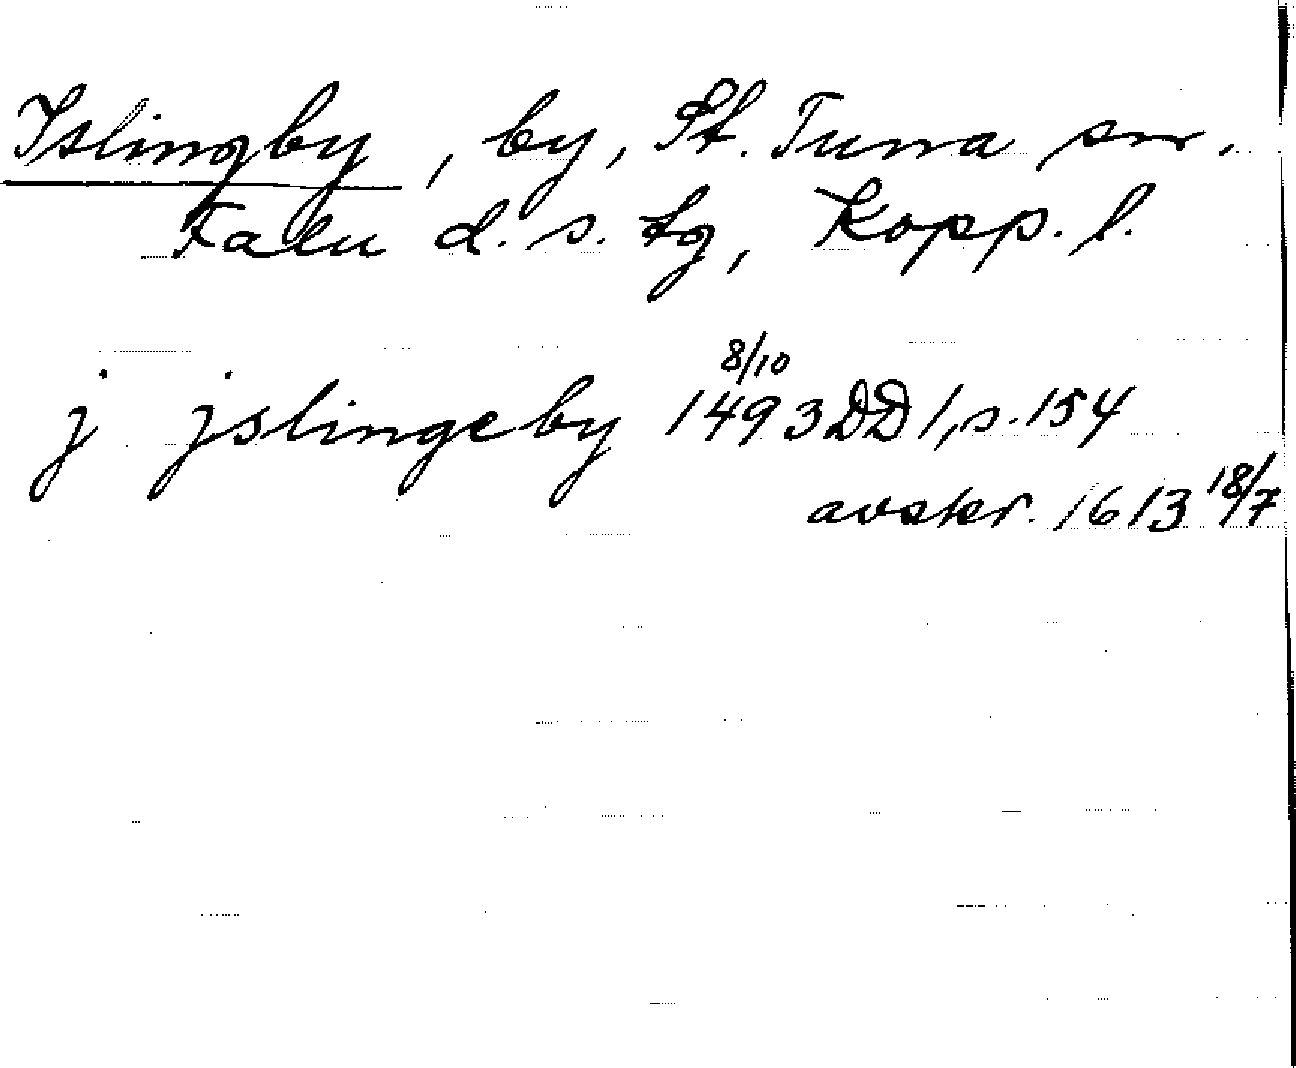 Islingby, by, St. Tuna sn.
Falu d. s. tg, Kopp. l.
j jslingeby 1493 8/10 DD 1, s. 154
avskr. 1613 18/7